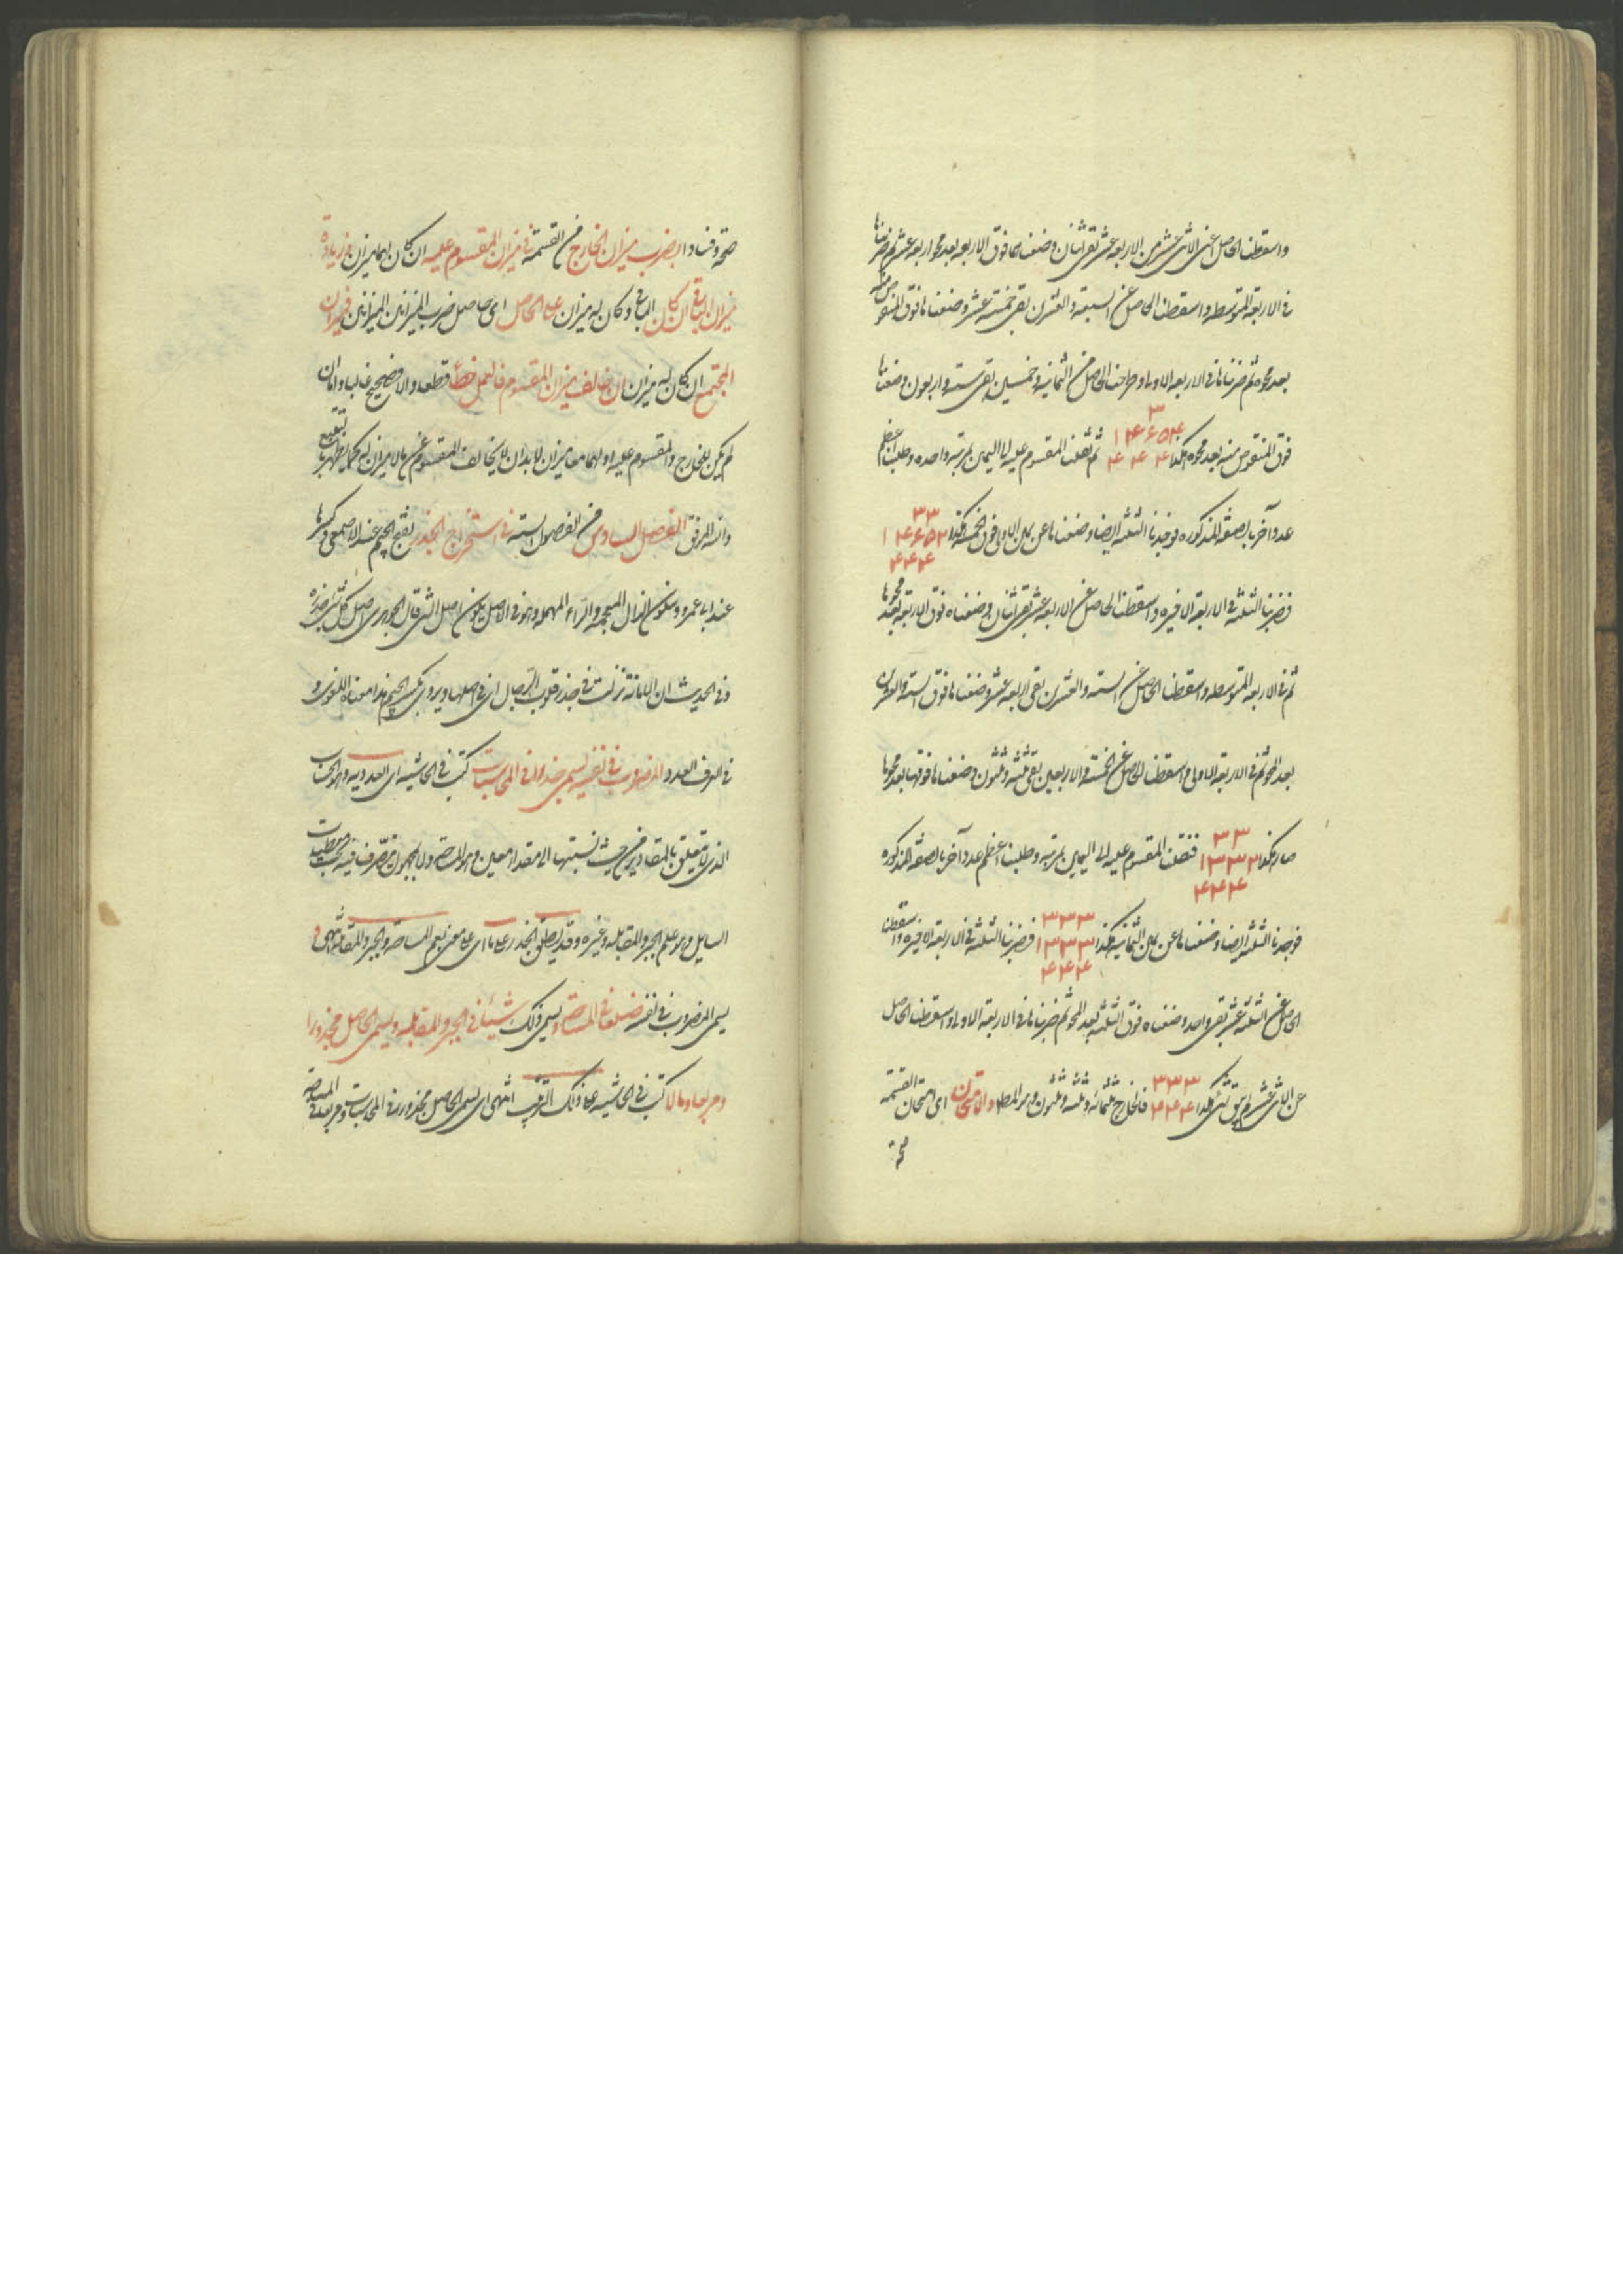 واسقطنا الحاصل اعنى الاثنى عشر من الاربعة عشر بقى اثنان وضعناهما فوق الاربعة بعد محو اربعة عشر ثم ضربناها
فى الاربعة المتوسطة واسقطنا الحاصل عن السبعة والعشرين بقى خمسة عشر وضعناها فوق المنقوص منه
بعد محوه ثم ضربناها فى الاربعة الاولى وطرحنا الحاصل من الثمانية وخمسين بقى ستة واربعون وضعناها
فوق المنقوص منه بعد محوه هكذا ثم نقلنا المقسوم عليه الى اليمين بمرتبة واحدة وطلبنا اعظم
عدد آخر بالصفة المذكورة فوجدنا الثلثة ايضا وضعناها عن يمين الاولى فوق الخمسة هكذا
فضربنا الثلثة فى الاربعة الاخيرة واسقطنا الحاصل عن الاربعة عشر بقى اثنان وضعناه فوق الاربعة بعد محوها
ثم فى الاربعة المتوسطة واسقطنا الحاصل عن الستة والعشرين بقى اربعة عشر وضعناها فوق الستة والعشرين
بعد المحو ثم فى الاربعة الاولى واسقطنا الحاصل عن الخمسة والاربعين بقى ثلثة وثلثون وضعناها فوقها بعد محوها
صار هكذا فنقلنا المقسوم عليه الى اليمين بمرتبة وطلبنا اعظم عدد آخر بالصفة المذكورة
فوجدنا الثلثة ايضا وضعناها عن يمين الثانية هكذا فضربنا الثلثة فى الاربعة الاخيرة واسقطنا
الحاصل عن الثلثة عشر بقى واحد وضعناه فوق الثلثة بعد المحو ثم ضربناها فى الاربعة الاولى واسقطنا الحاصل
عن الاثنى عشر لم يبق شئ هكذا ٣٣٣ ۴۴۴ فالخارج ثلثمائة وثلثة وثلثون وهو المط والامتحان اى امتحان القسمة
صحة
صحة وفسادا بضرب ميزان الخارج من القسمة فى ميزان المقسوم عليه ان كان لهما ميزان وزيادة
ميزان الباقى ان كان الباقى وكان له ميزان على الحاصل اى حاصل ضرب الميزانين الميزانين فميزان
المجتمع ان كان له ميزان ان خالف ميزان المقسوم فالعمل خطأ قطعا والا فصحيح غالبا واما ان
لم يكن للخارج والمقسوم عليه اولهما معا ميزان لابد ان لا يخالف المقسوم عن ما لا ميزان له كما يظهر بالتتبع
والله الموفق الفصل السادس من الفصول الستة فى استخراج الجذر بفتح الجيم عند الاصمعى وكسرها
عند ابى عمرو وسكون الذال المعجمة والراء المهملة وهو فى الاصل يكون اصل الشئ قال الجوهرى اصل كل شئ جذره
وفى الحديث ان الامانة نزلت فى جذر قلوب الرجال اى فى اصلها ويروى بكسر الجيم هذا معناه اللغوى و
فى العرف العدد المضروب فى نفسه يسمى جذرا فى المحاسبات كتب فى الحاشية اى العددية وهو الحساب
الذى لا يتعلق بالمقادير من حيث نسبتها الى مقدار معين وهو المساحة ولا بمجهول يتصرف فيه بحسب معطيات
السائل وهو علم الجبر والمقابلة وغيره وقد يطلق الجذر عاما اى على معنى يعم المساحة والجبر والمقابلة انتهى و
يسمى المضروب فى نفسه ضلعا فى المساحة ويسمى ذلك شيئا فى الجبر والمقابلة ويسمى الحاصل مجذورا
ومربعا ومالا كتب فى الحاشية على ذلك الترتيب انتهى اى يسمى الحاصل مجذورا فى المحاسبات ومربعا فى المساحة